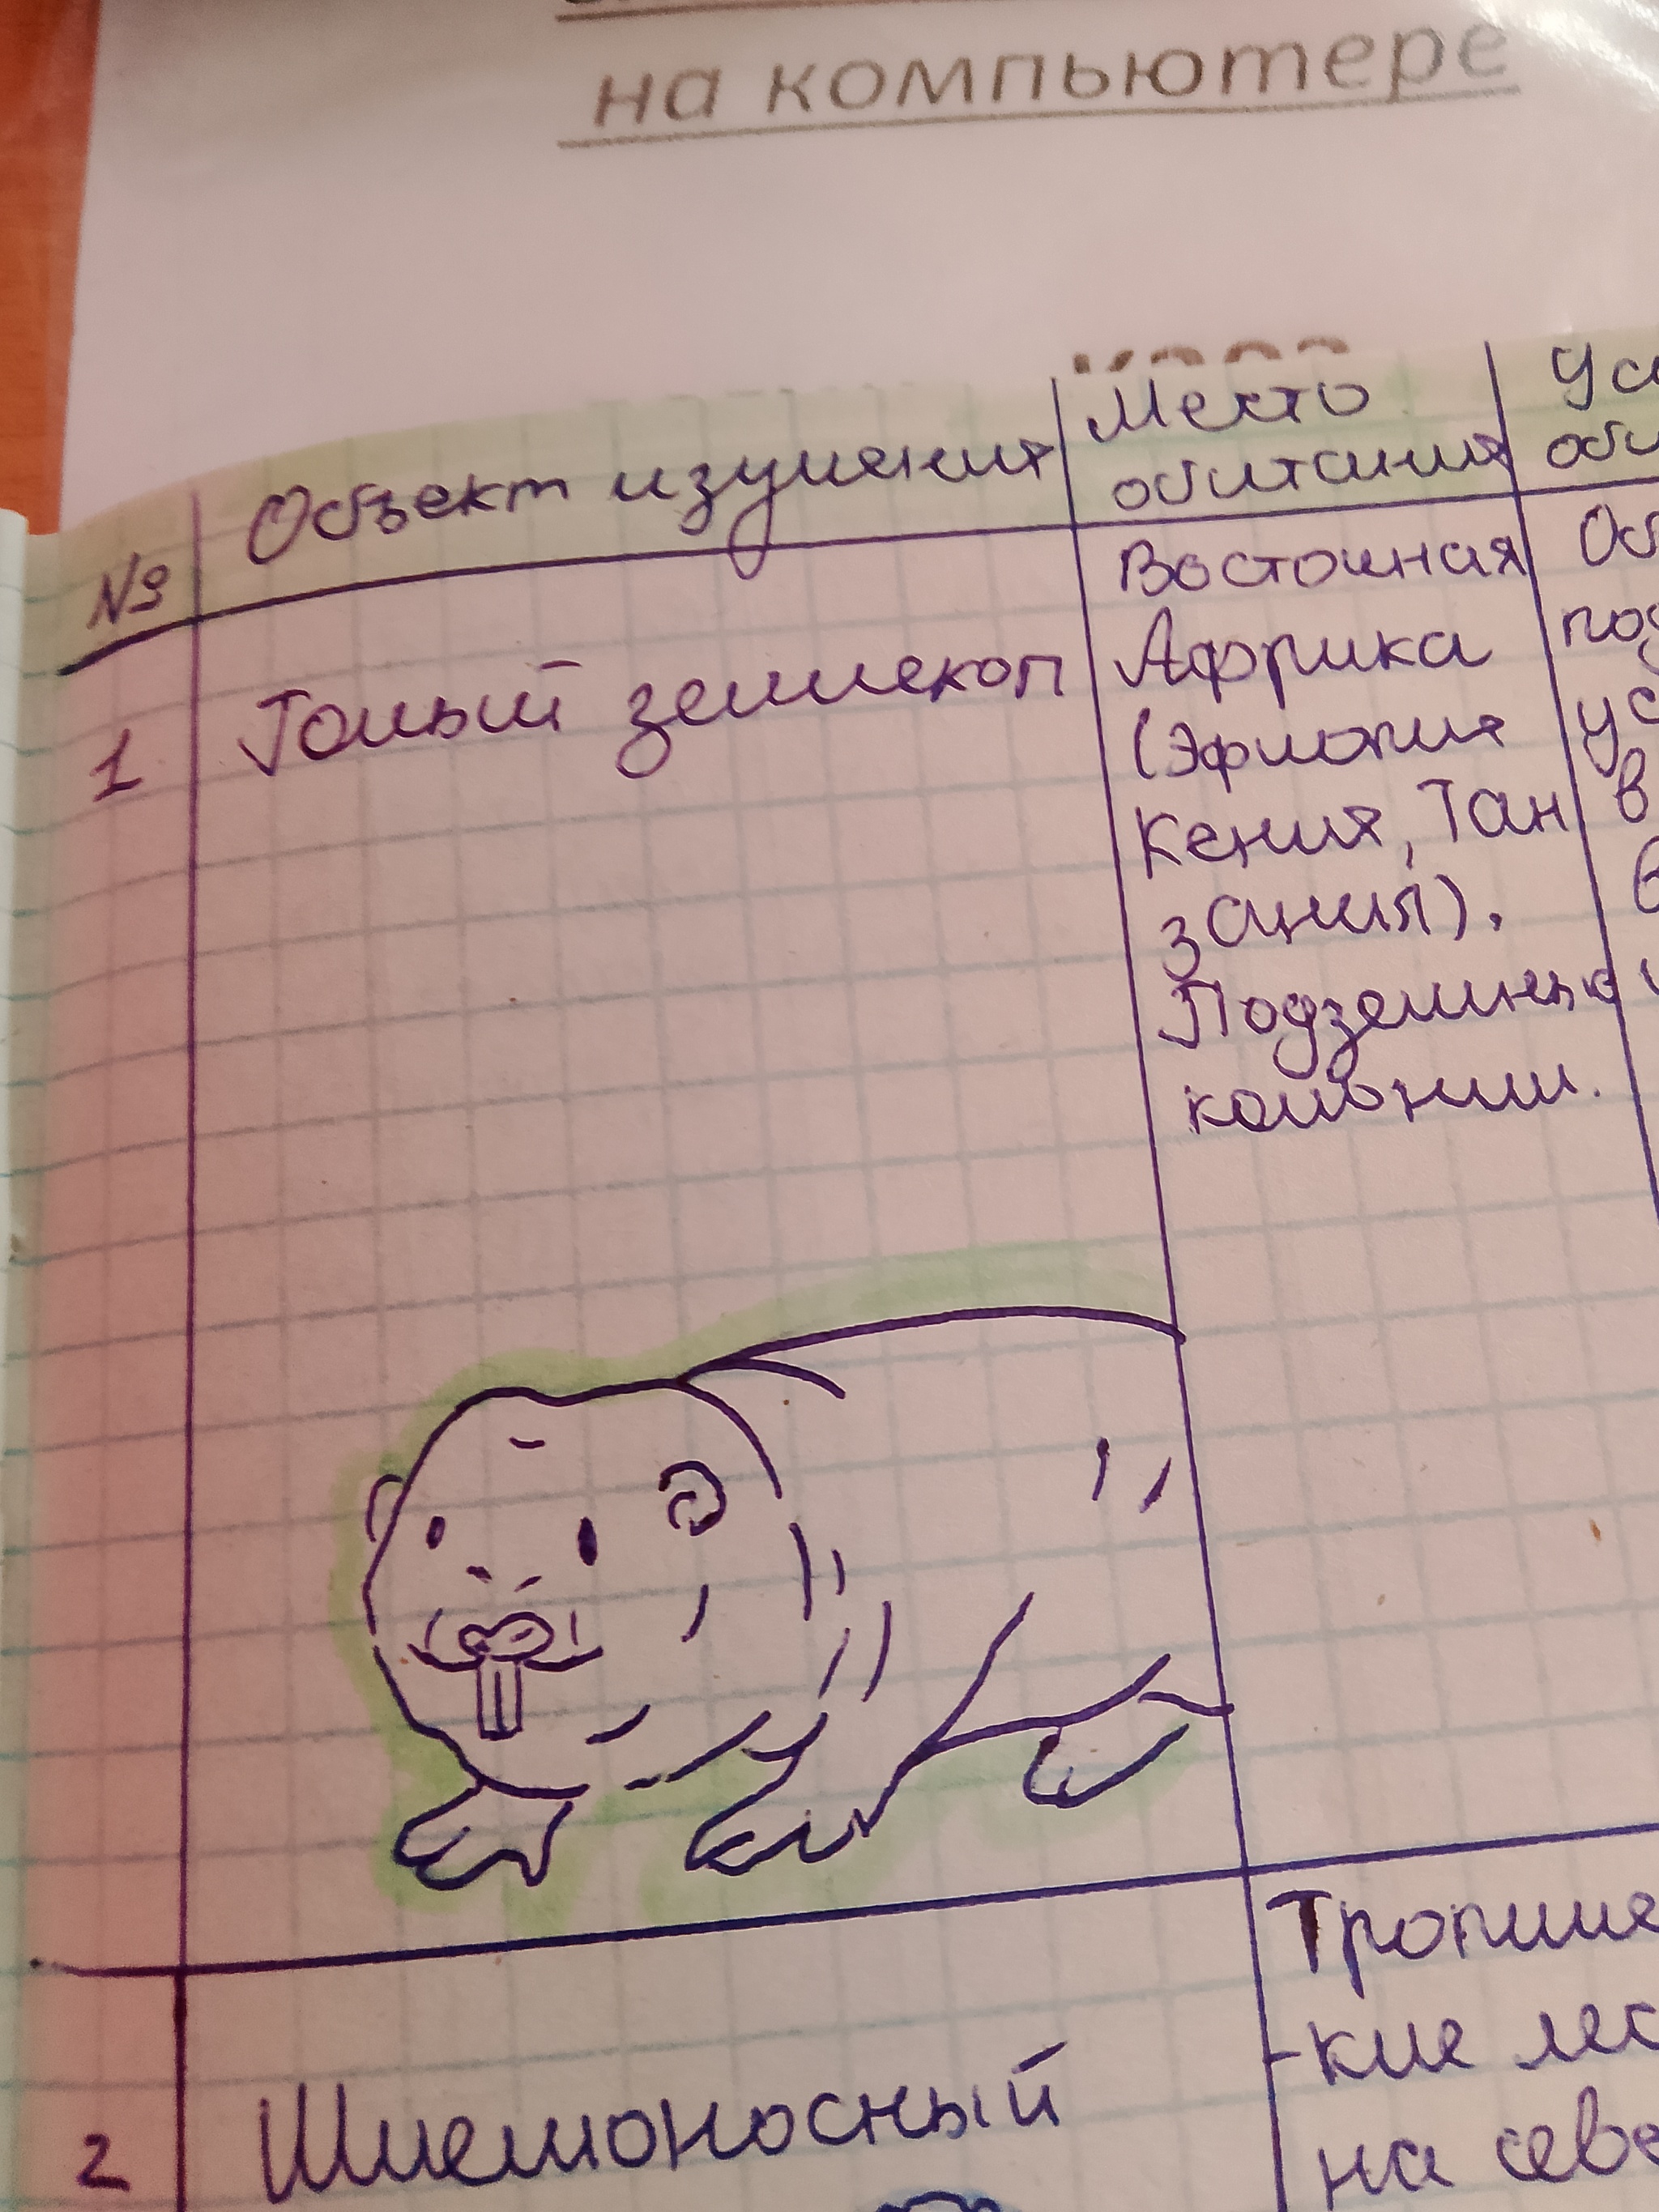 на компьютере
№ Объект изучения Место обитания
1 Голый землекоп
Восточная
Африка
(Эфиопия
Кения, Тан
зания).
Подземные
колонии.
2 Шлемоносный
Тропиче
-кие лес
на севе